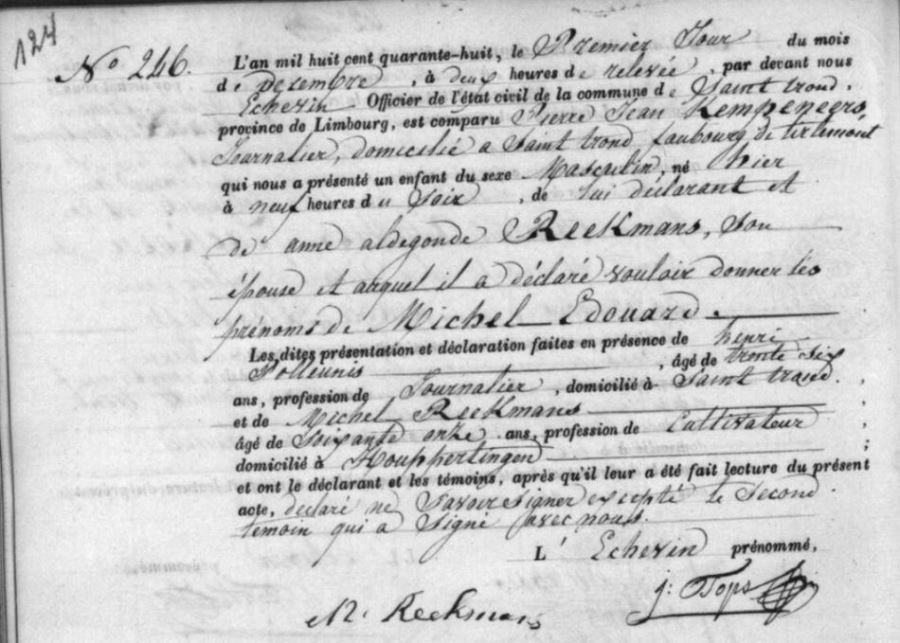 124
No 246.
L'an mil huit cent quarante-huit, le Premier Jour du mois
de Decembre, à deux heures de relevée, par devant nous
Echevin Officier de l'état civil de la commune de Saint trond,
province de Limbourg, est comparu Pierre Jean Kempeneers,
Journalier, domicilié a Saint trond, faubourg de tirlemont
qui nous a présenté un enfant du sexe Masculin, né hier
à neuf heures du Soir, de lui déclarant et
de anne aldegonde Reekmans, Son
épouse et auquel il a déclaré vouloir donner les
prénoms de Michel Edouard.
Les dites présentation et déclaration faites en présence de henri
Polleunis, âgé de trente six
ans, profession de Journalier, domicilié à Saint trond.
et de Michel Reekmans
âgé de Soixante onze ans, profession de Cultivateur
domicilié à Houppertingen
et ont le déclarant et les témoins, après qu'il leur a été fait lecture du présent
acte, declaré ne Savoir Signer excepté le Second
temoin qui a Signé avec nous.
L'Echevin prénommé,
j: Tops
M. Reekmans